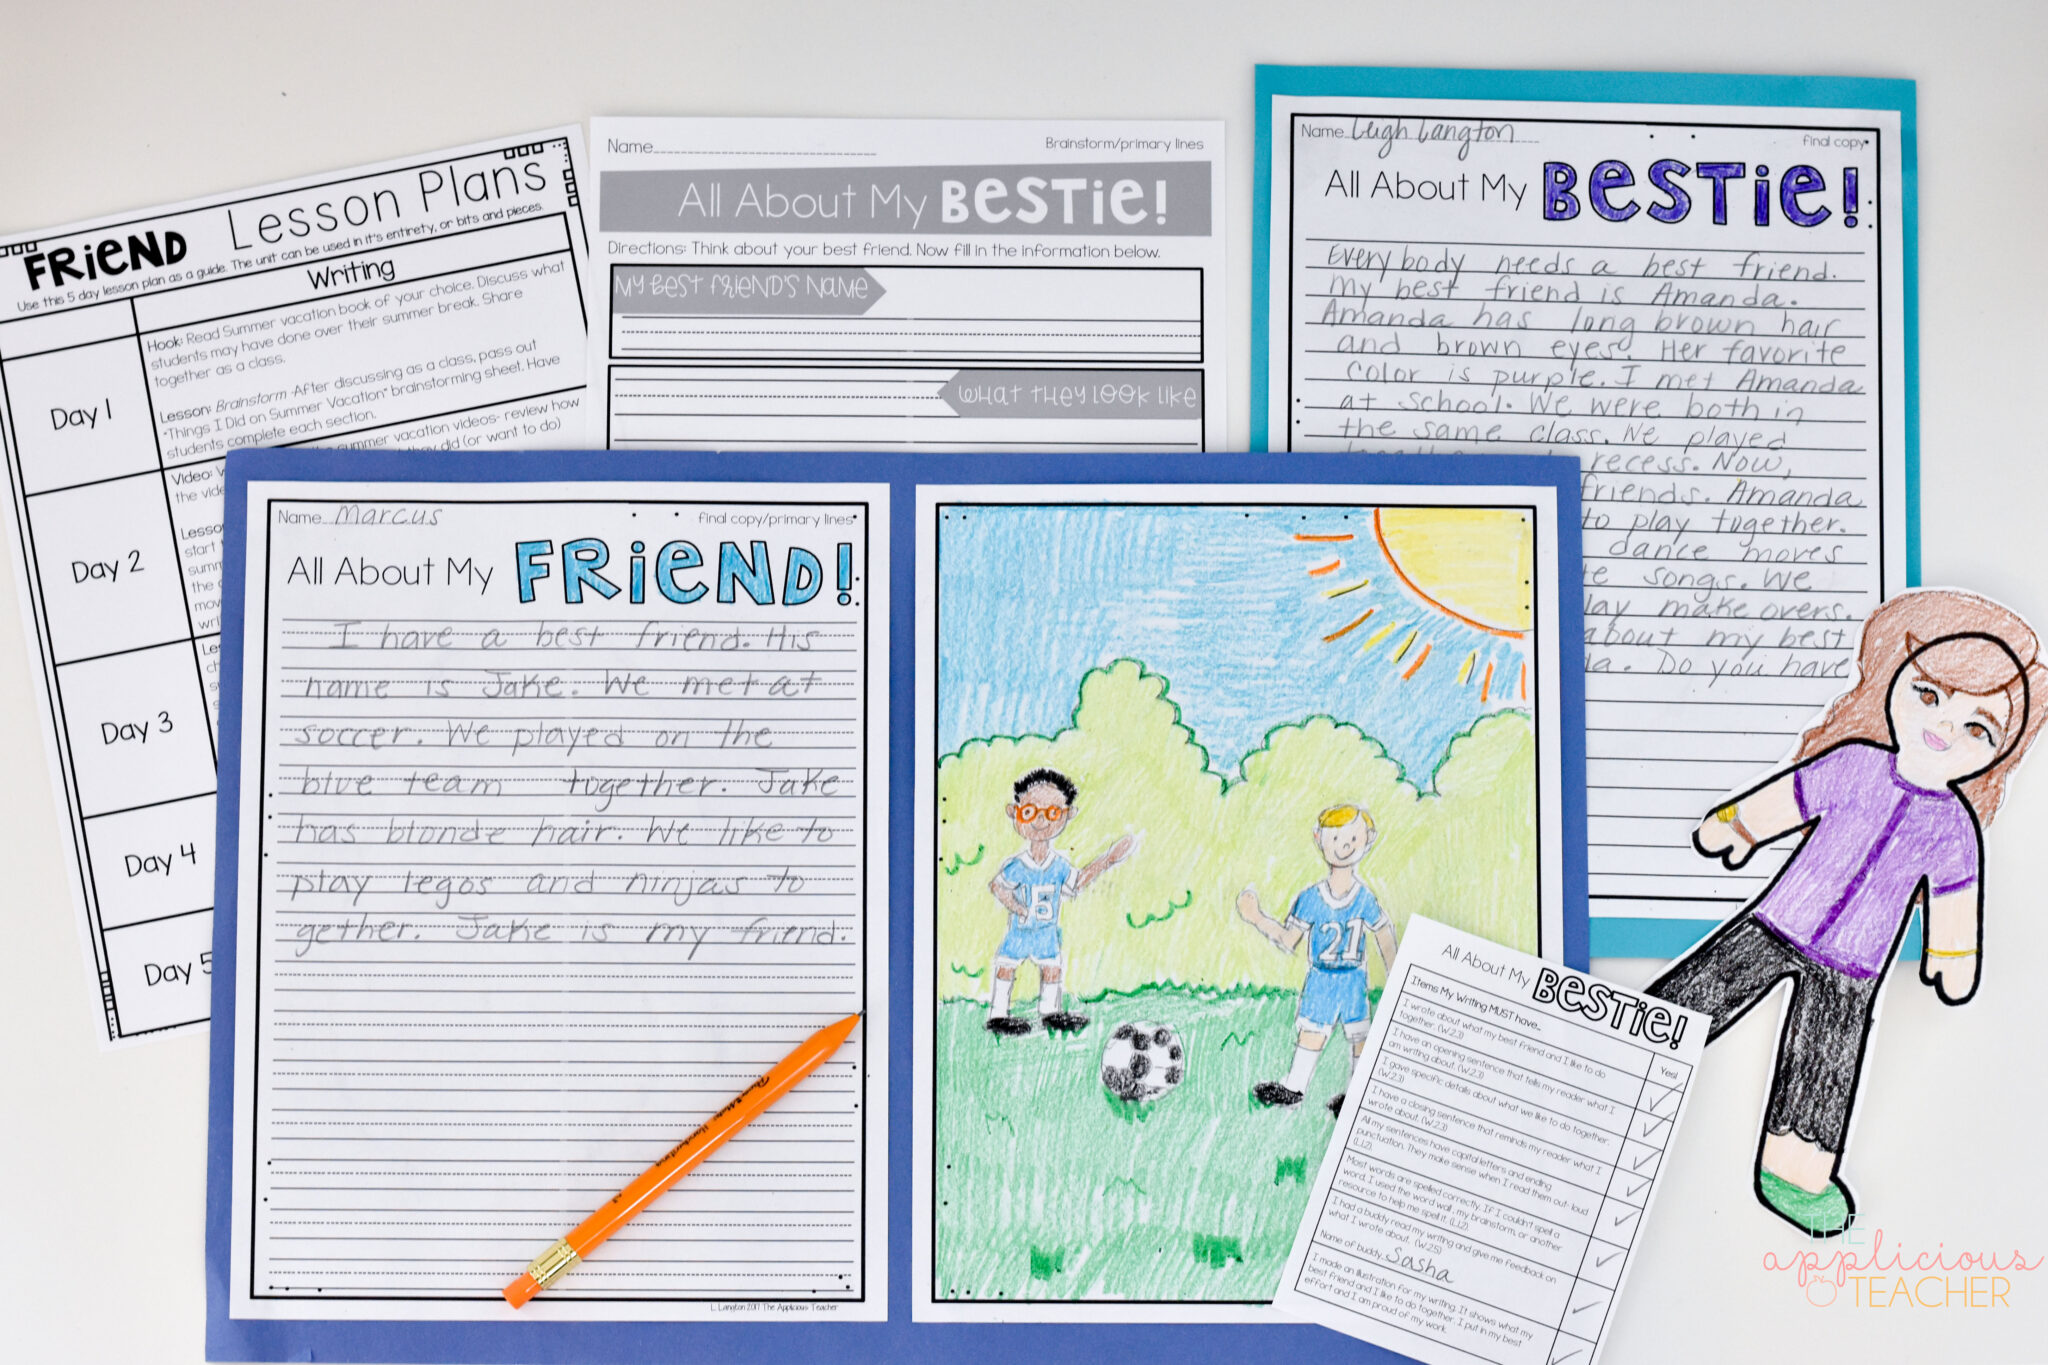 FRIEND Lesson Plans
Use this 5 day lesson plan as a guide. The unit can be used in it's entirety, or bits and pieces.
Writing
Day 1
Hook: Read Summer vacation book of your choice. Discuss what
students may have done over their summer break. Share
together as a class.
Lesson: Brainstorm -After discussing as a class, pass out
"Things I Did on Summer Vacation" brainstorming sheet. Have
students complete each section.
Day 2
Video:
summer vacation videos- review how
they did (or want to do)
the
Day 3
Day 4
Day 5
Name
Brainstorm/primary lines
All About My BESTIE!
Directions: Think about your best friend. Now fill in the information below.
MY BEST FRIEND'S NAME
WHAT THEY LOOK LIKE
Name Leigh Langton
final copy
All About My BESTIE!
Everybody needs a best friend.
my best friend is Amanda.
Amanda has long brown hair
and brown eyes. Her favorite
color is purple. I met Amanda
at school. We were both in
the same class. We played
recess. Now,
friends. Amanda
to play together.
dance moves
songs. We
make overs.
about my best
Do you have
Name Marcus
final copy/primary lines
All About My FRIEND!
I have a best friend. His
name is Jake. We met at
soccer. We played on the
blue team together. Jake
has blonde hair. We like to
play legos and ninjas to
gether. Jake is my friend.
L. Langton 2017 The Applicious Teacher
21
All About My
BESTIE!
Items My Writing MUST have...
Yes!
I wrote about what my best friend and I like to do
together. (W.2.3)
I have an opening sentence that tells my reader what I
am writing about. (W.2.3)
I gave specific details about what we like to do together.
(W.2.3)
I have a closing sentence that reminds my reader what I
wrote about. (W.2.3)
All my sentences have capital letters and ending
punctuation. They make sense when I read them out- loud
(L.1.2)
Most words are spelled correctly. If I couldn't spell a
word, I used the word wall, my brainstorm, or another
resource to help me spell it. (L.1.2)
I had a buddy read my writing and give me feedback on
what I wrote about. (W.2.5)
Name of buddy: Sasha
I made an illustration for my writing. It shows what my
best friend and I like to do together. I put in my best
effort and I am proud of my work.
THE
applicious
TEACHER